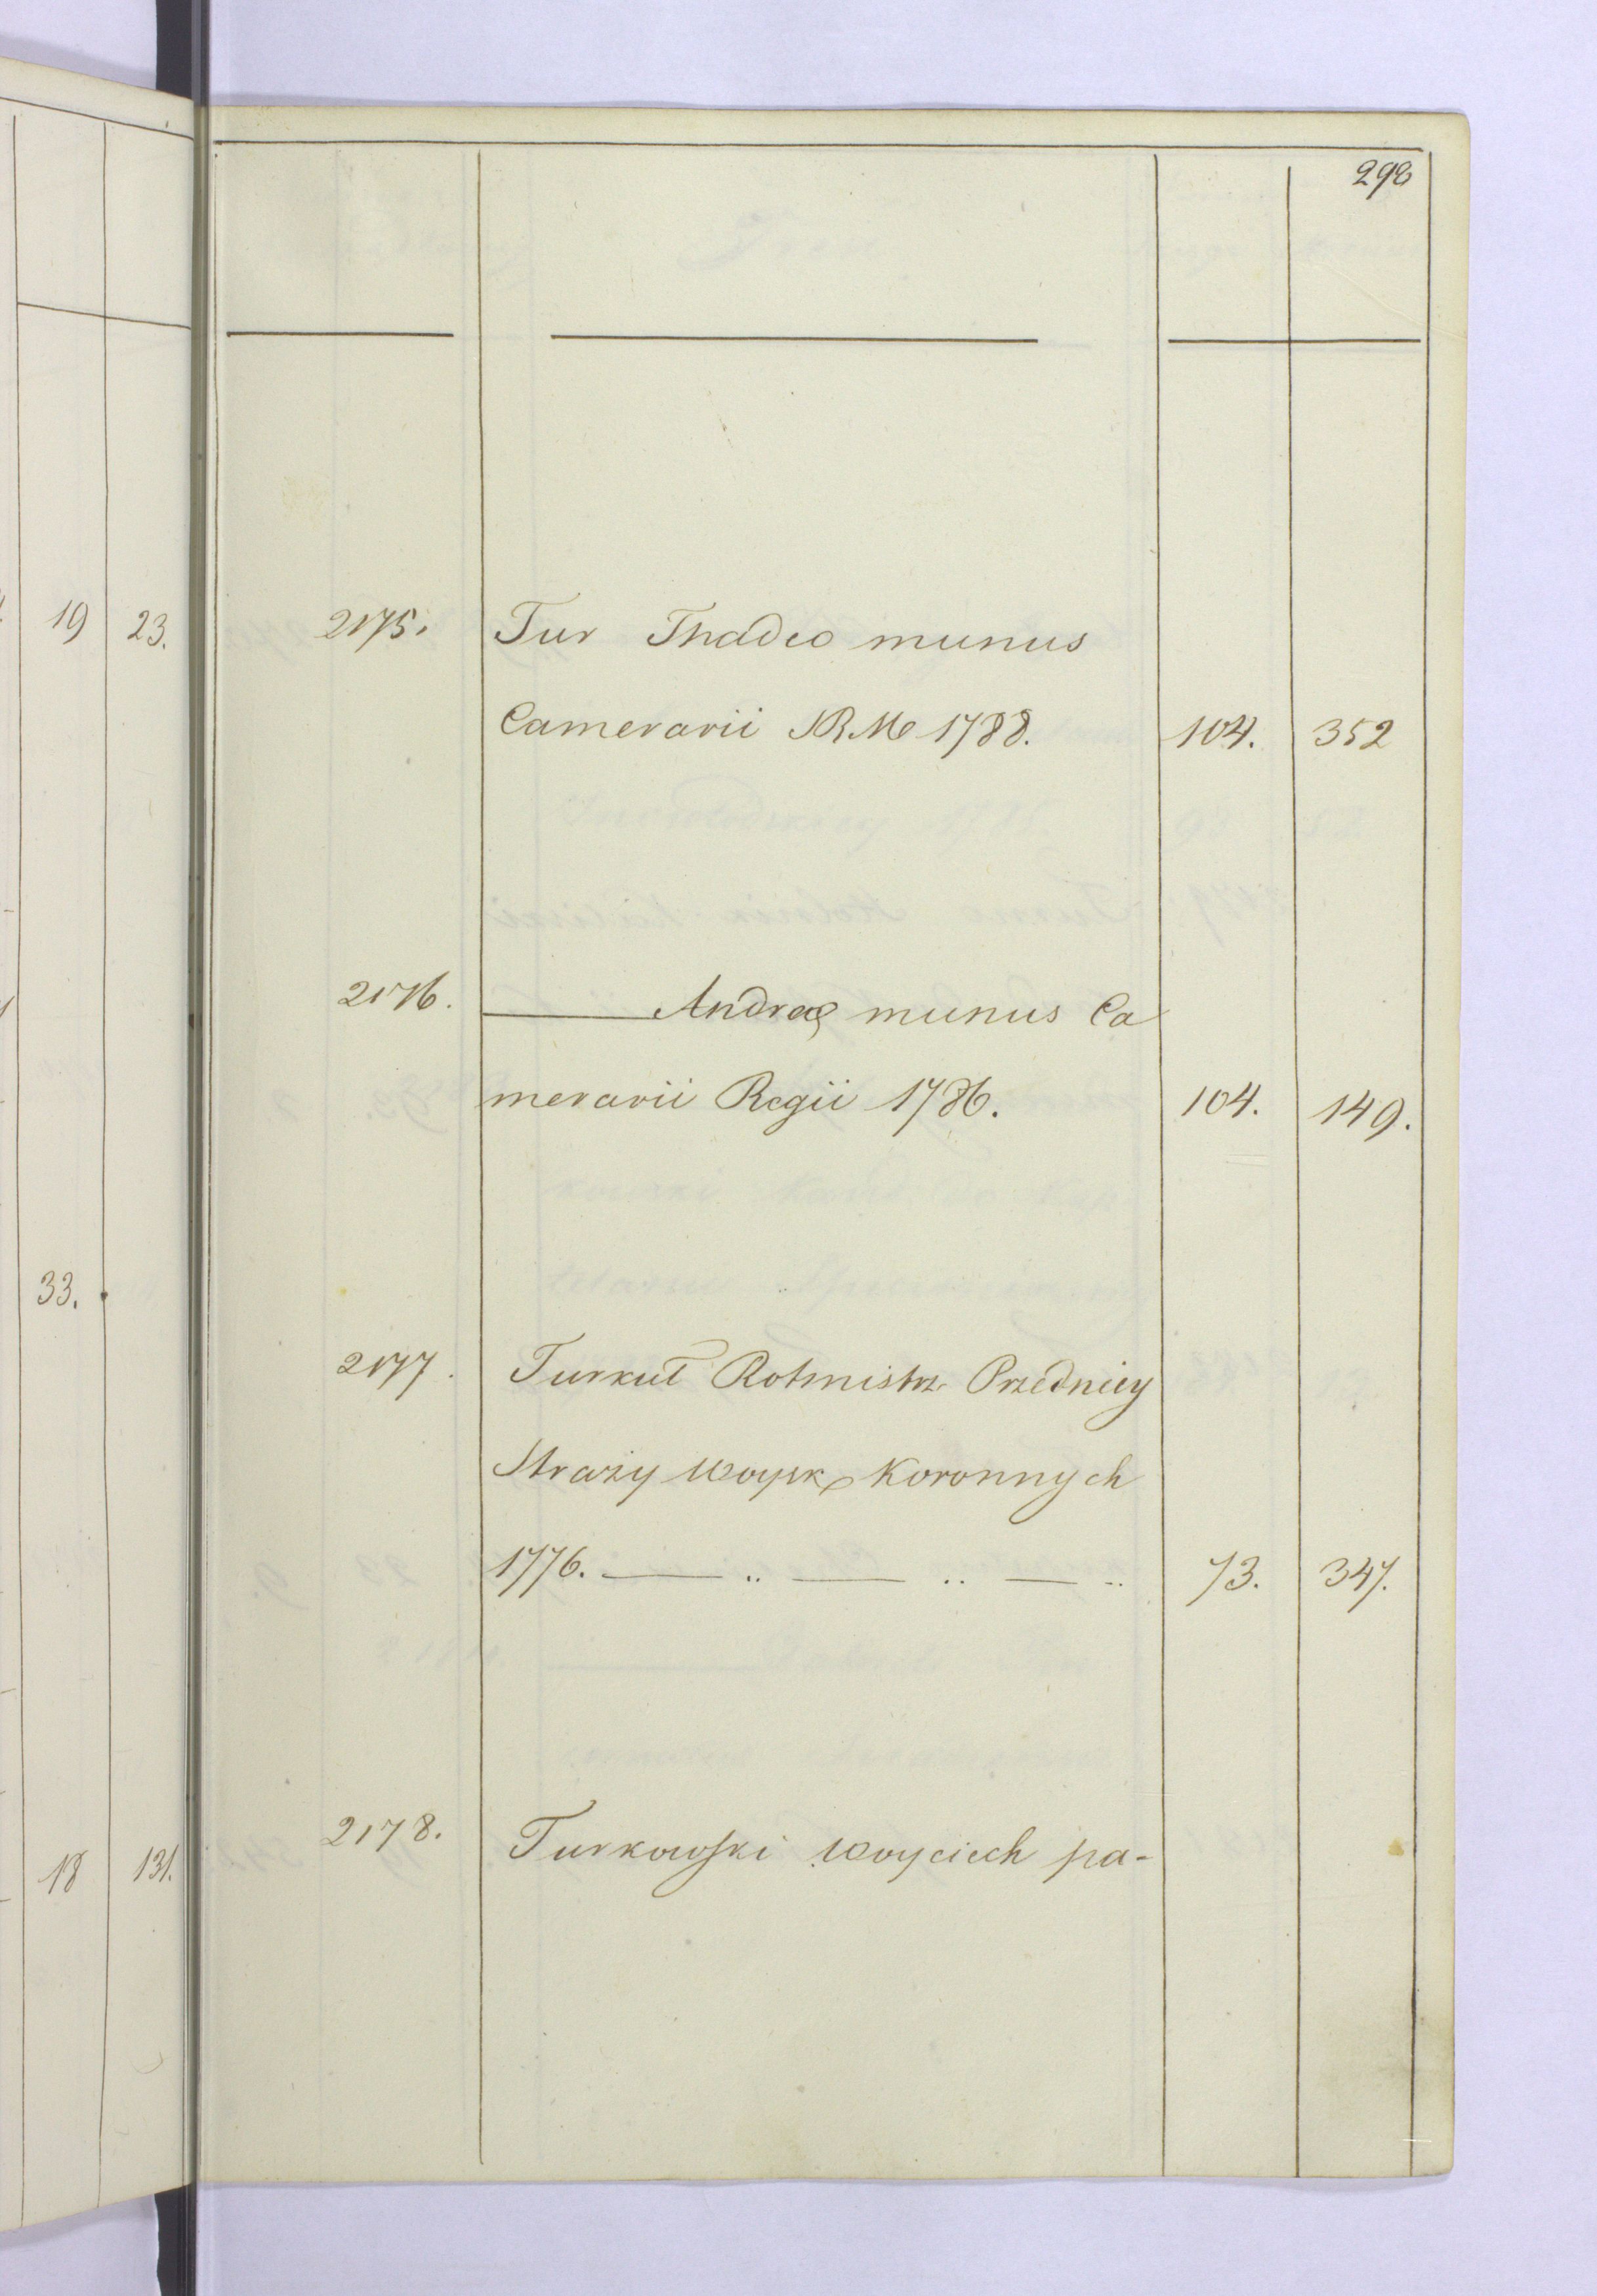 298
19 23.
2175. Tur Thadeo munus
Camerarii JRM 1788. 104. 352
2176. ——— Andreæ munus Ca
merarii Regii 1786. 104. 149.
33.
2177. Turkuł Rotmistrz Przedniey
Straży woysk Koronnych
1776. — .. — .. — .. 73. 347.
2178. Turkowski Woyciech pa-
18 131.